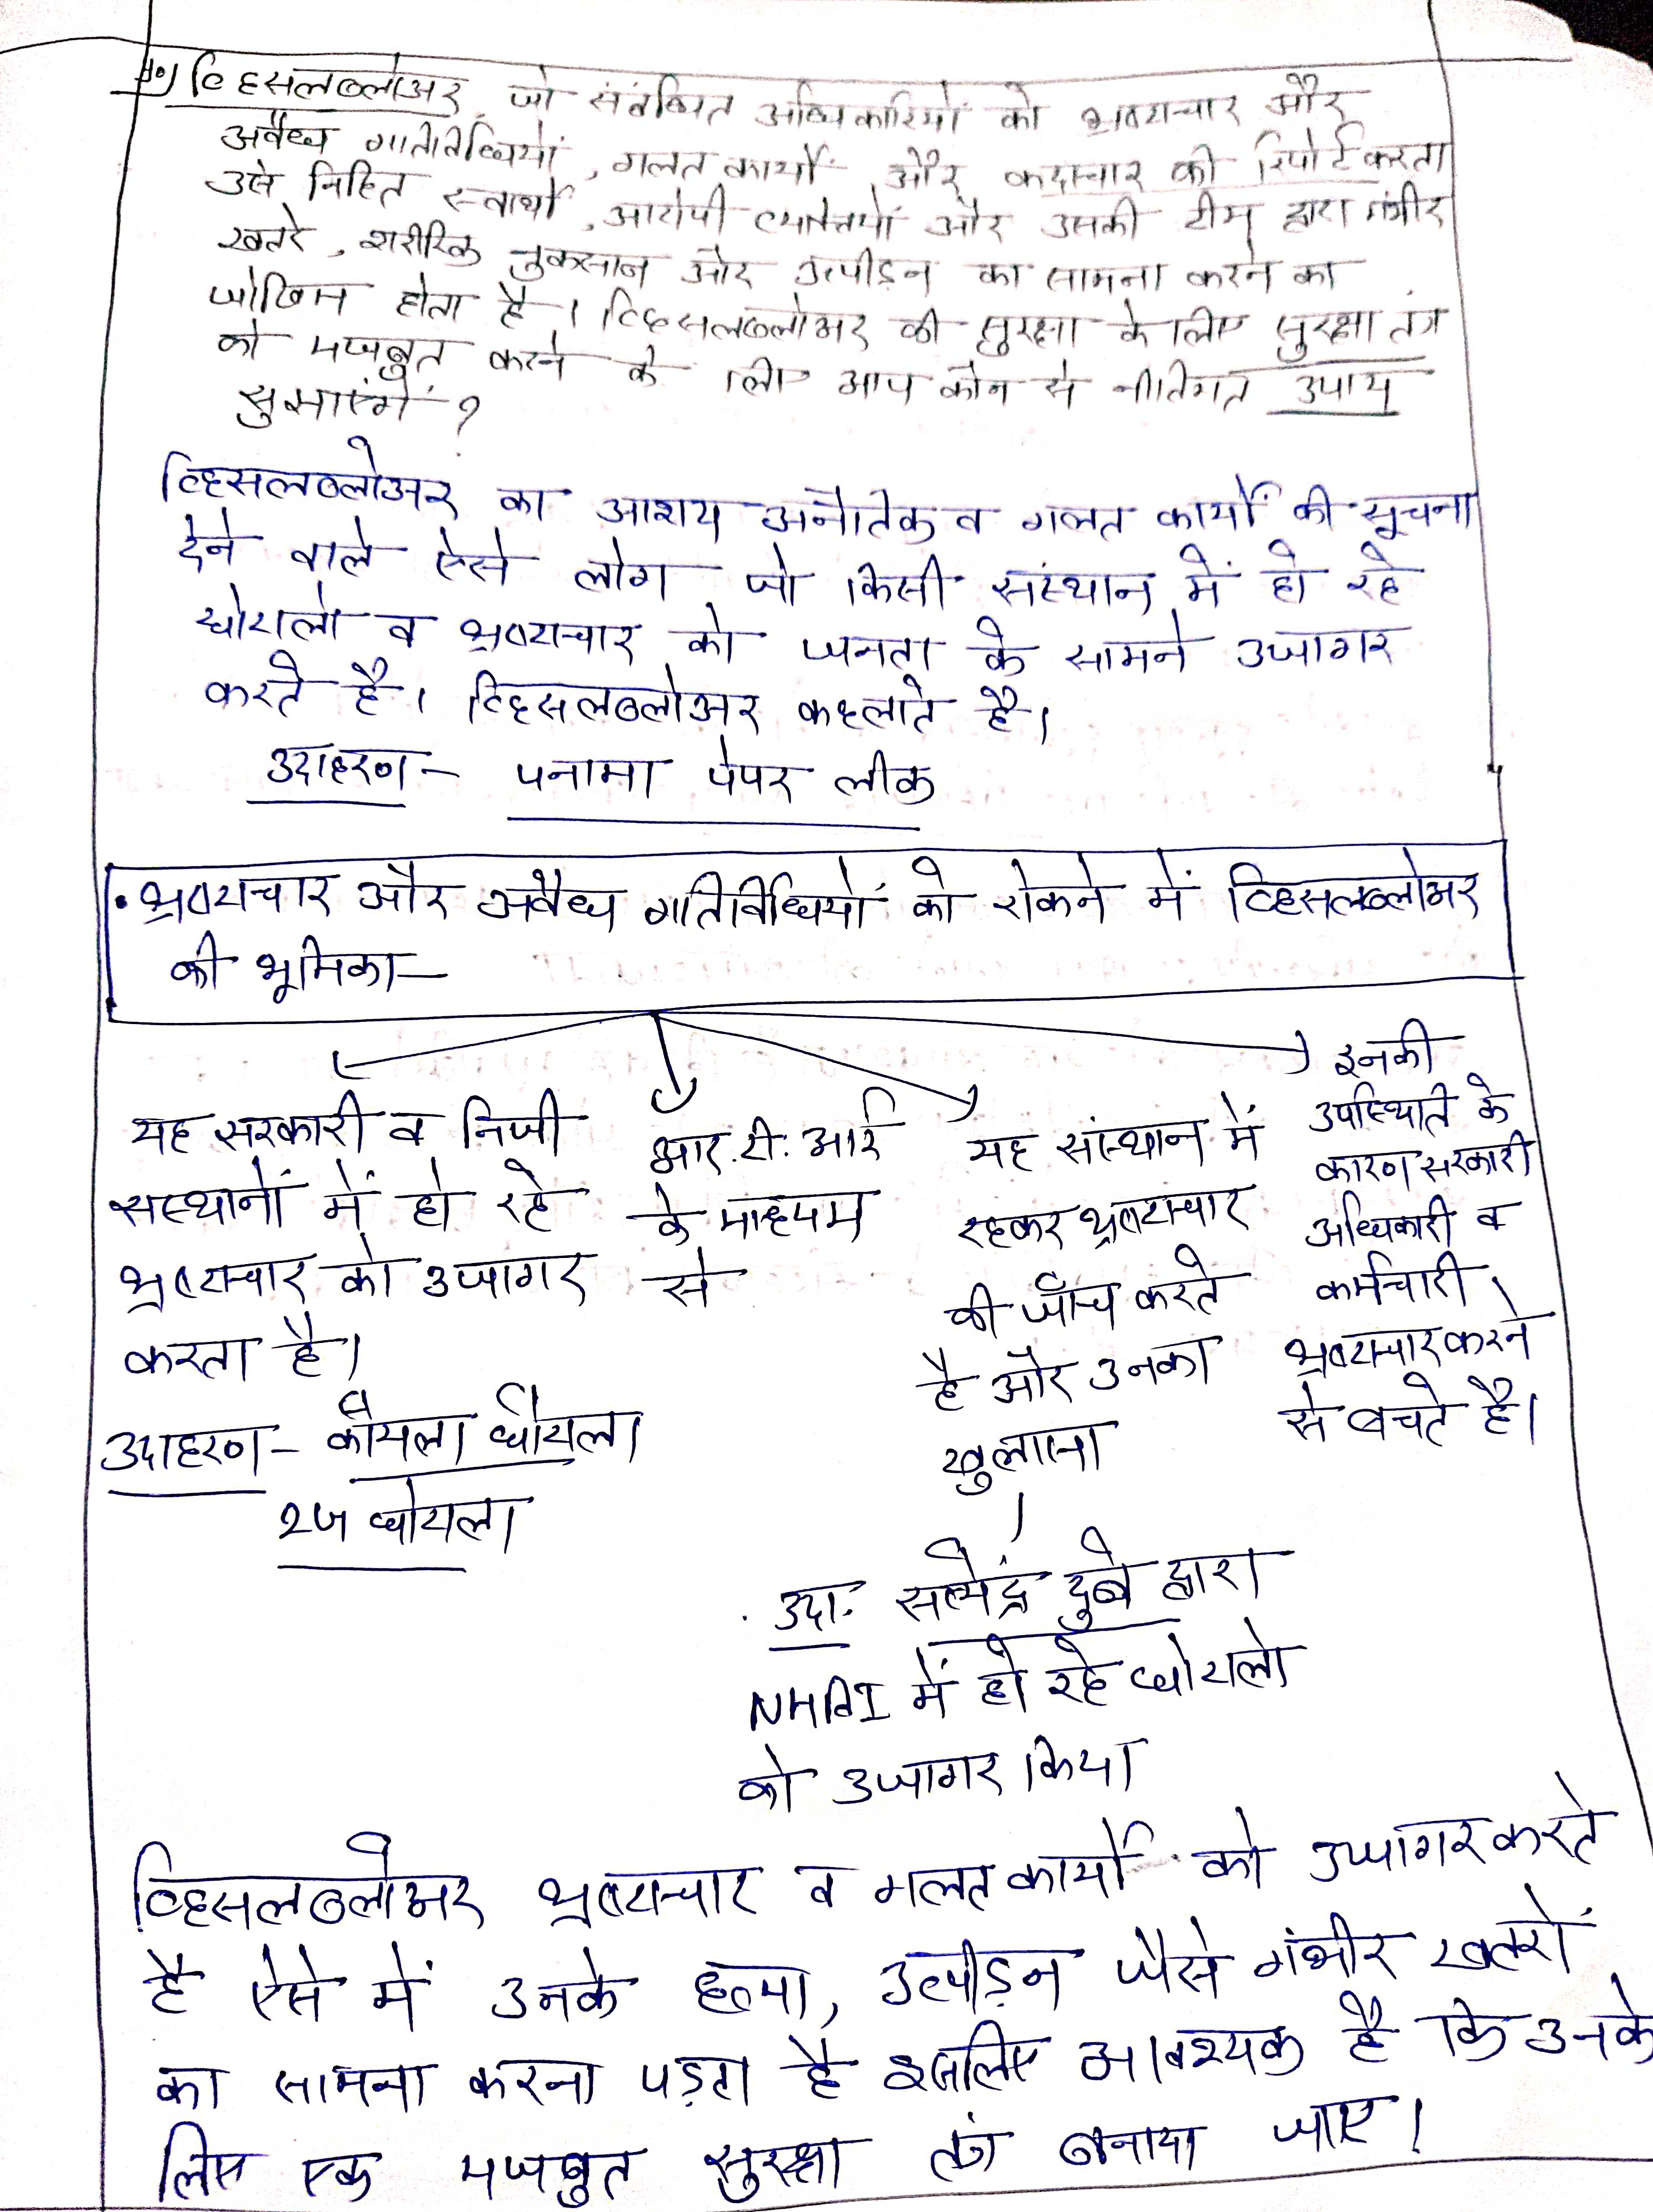 प्र०) व्हिसलब्लोअर, जो संबन्धित अधिकारियों को भ्रष्टाचार और
अवैध गतिविधियों, गलत कार्यों और कदाचार की रिपोर्ट करता
उसे निहित स्वार्थों, आरोपी व्यक्तियों और उसकी टीम द्वारा गंभीर
खतरे, शारीरिक नुकसान और उत्पीड़न का सामना करने का
जोखिम होता है। व्हिसलब्लोअर की सुरक्षा के लिए सुरक्षा तंत्र
को मजबुत करने के लिए आप कौन से नीतिगत उपाय
सुझाएंगें ?
व्हिसलब्लोअर का आशय अनैतिक व गलत कार्यों की सूचना
देने वाले ऐसे लोग जो किसी संस्थान में हो रहे
घोटालो व भ्रष्टाचार को जनता के सामने उजागर
करते है। व्हिसलब्लोअर कहलाते है।
उदाहरण – पनामा पेपर लीक
• भ्रष्टाचार और अवैध गतिविधियों को रोकने में व्हिसलब्लोअर
की भूमिका –
यह सरकारी व निजी
सस्थानों में हो रहे
भ्रष्टाचार को उजागर
करता है।
उदाहरण – कोयला घोटाला
2G घोटाला
आर.टी.आई
के माध्यम
से
यह संस्थान में
रहकर भ्रष्टाचार
की जाँच करते
है और उनका
खुलासा
उदा. सत्येंद्र दुबे द्वारा
NHAI में हो रहे घोटालो
को उजागर किया
इनकी
उपस्थिति के
कारण सरकारी
अधिकारी व
कर्मचारी
भ्रष्टाचार करने
से बचते है।
व्हिसलब्लोअर भ्रष्टाचार व गलत कार्यों को उजागर करते
है ऐसे में उनके हत्या, उत्पीड़न जैसे गंभीर खतरों
का सामना करना पड़ता है इसलिए आवश्यक है कि उनके
लिए एक मजबुत सुरक्षा तंत्र बनाया जाए।